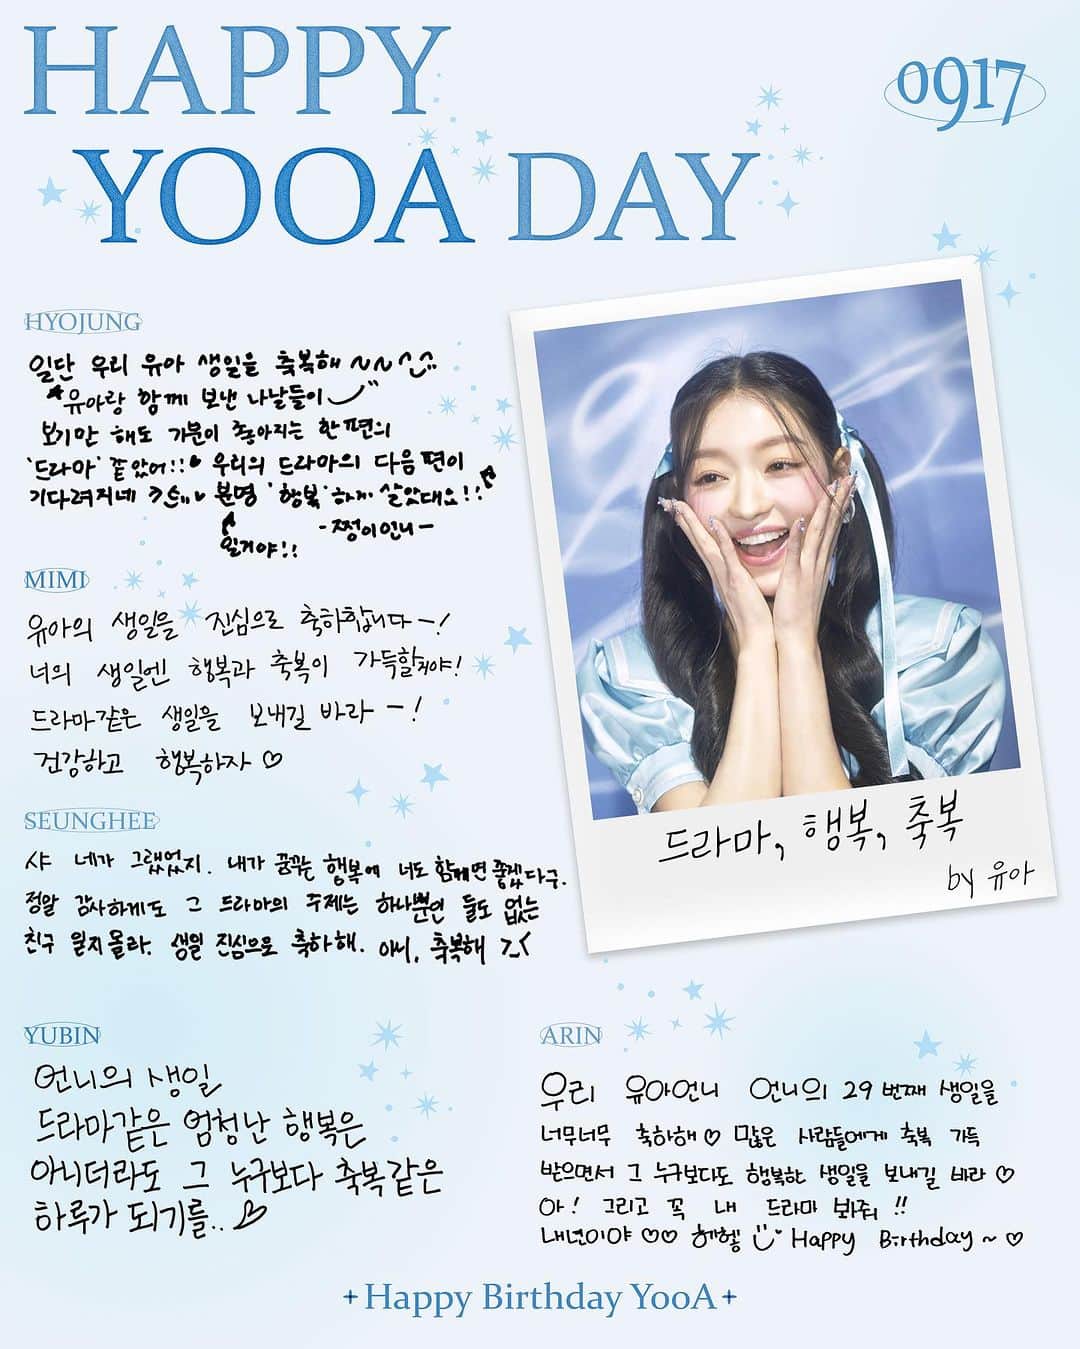 HAPPY
YOOA DAY
0917
HYOJUNG
일단 우리 유아 생일을 축복해 ~~^^
유아랑 함께 보낸 나날들이
보기만 해도 기분이 좋아지는 한편의
'드라마' 같았어!! 우리의 드라마의 다음 편이
기다려지네 분명 '행복'하게 살았대요!!
일거야!!
-쩡이언니-
MIMI
유아의 생일을 진심으로 축하합니다-!
너의 생일엔 행복과 축복이 가득할거야!
드라마같은 생일을 보내길 바라-!
건강하고 행복하자♡
드라마, 행복, 축복
by 유아
SEUNGHEE
샤 네가 그랬었지. 내가 꿈꾸는 행복에 너도 함께면 좋겠다구.
정말 감사하게도 그 드라마의 주제는 하나뿐인 둘도 없는
친구 일지 몰라. 생일 진심으로 축하해. 아니, 축복해
YUBIN
언니의 생일
드라마같은 엄청난 행복은
아니더라도 그 누구보다 축복같은
하루가 되기를..♡
ARIN
우리 유아언니 언니의 29번째 생일을
너무너무 축하해♡ 많은 사람들에게 축복 가득
받으면서 그 누구보다도 행복한 생일을 보내길 바라♡
아! 그리고 꼭 내 드라마 봐줘!!
내년이야♡♡ 헤헿 Happy Birthday~♡
+Happy Birthday YooA+